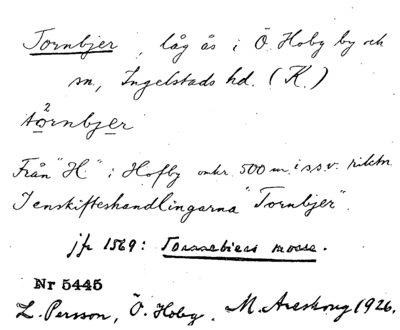 Tornbjer, låg ås i Ö. Hoby by och
sn, Ingelstads hd. (K.)
2
tornbjer
Från "H" i Hofby omkr. 500 m. i s.s.v. riktn
I enskifteshandlingarna "Tornbjer".
jfr 1569: Tornebiers mosse.
Nr 5445
L. Persson, Ö. Hoby. M. Areskoug 1926.